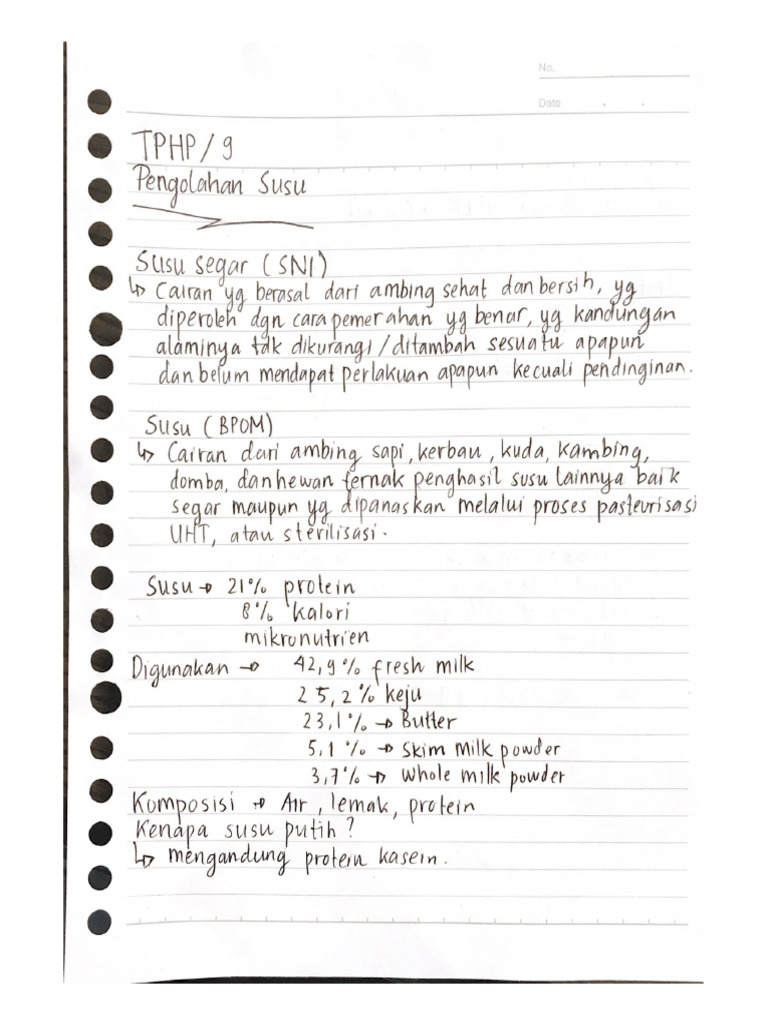 No.
Date
TPHP/9
Pengolahan Susu
Susu segar (SNI)
↳ Cairan yg berasal dari ambing sehat dan bersih, yg
diperoleh dgn cara pemerahan yg benar, yg kandungan
alaminya tdk dikurangi/ditambah sesuatu apapun
dan belum mendapat perlakuan apapun kecuali pendinginan.
Susu (BPOM)
↳ Cairan dari ambing sapi, kerbau, kuda, kambing,
domba, dan hewan ternak penghasil susu lainnya baik
segar maupun yg dipanaskan melalui proses pasteurisasi
UHT, atau sterilisasi.
Susu → 21% protein
8% kalori
mikronutrien
Digunakan → 42,9% fresh milk
25,2% keju
23,1% → Butter
5,1% → Skim milk powder
3,7% → Whole milk powder
Komposisi → Air, lemak, protein
Kenapa susu putih?
↳ mengandung protein kasein.